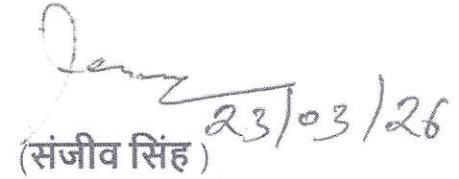 23/03/26
(संजीव सिंह)